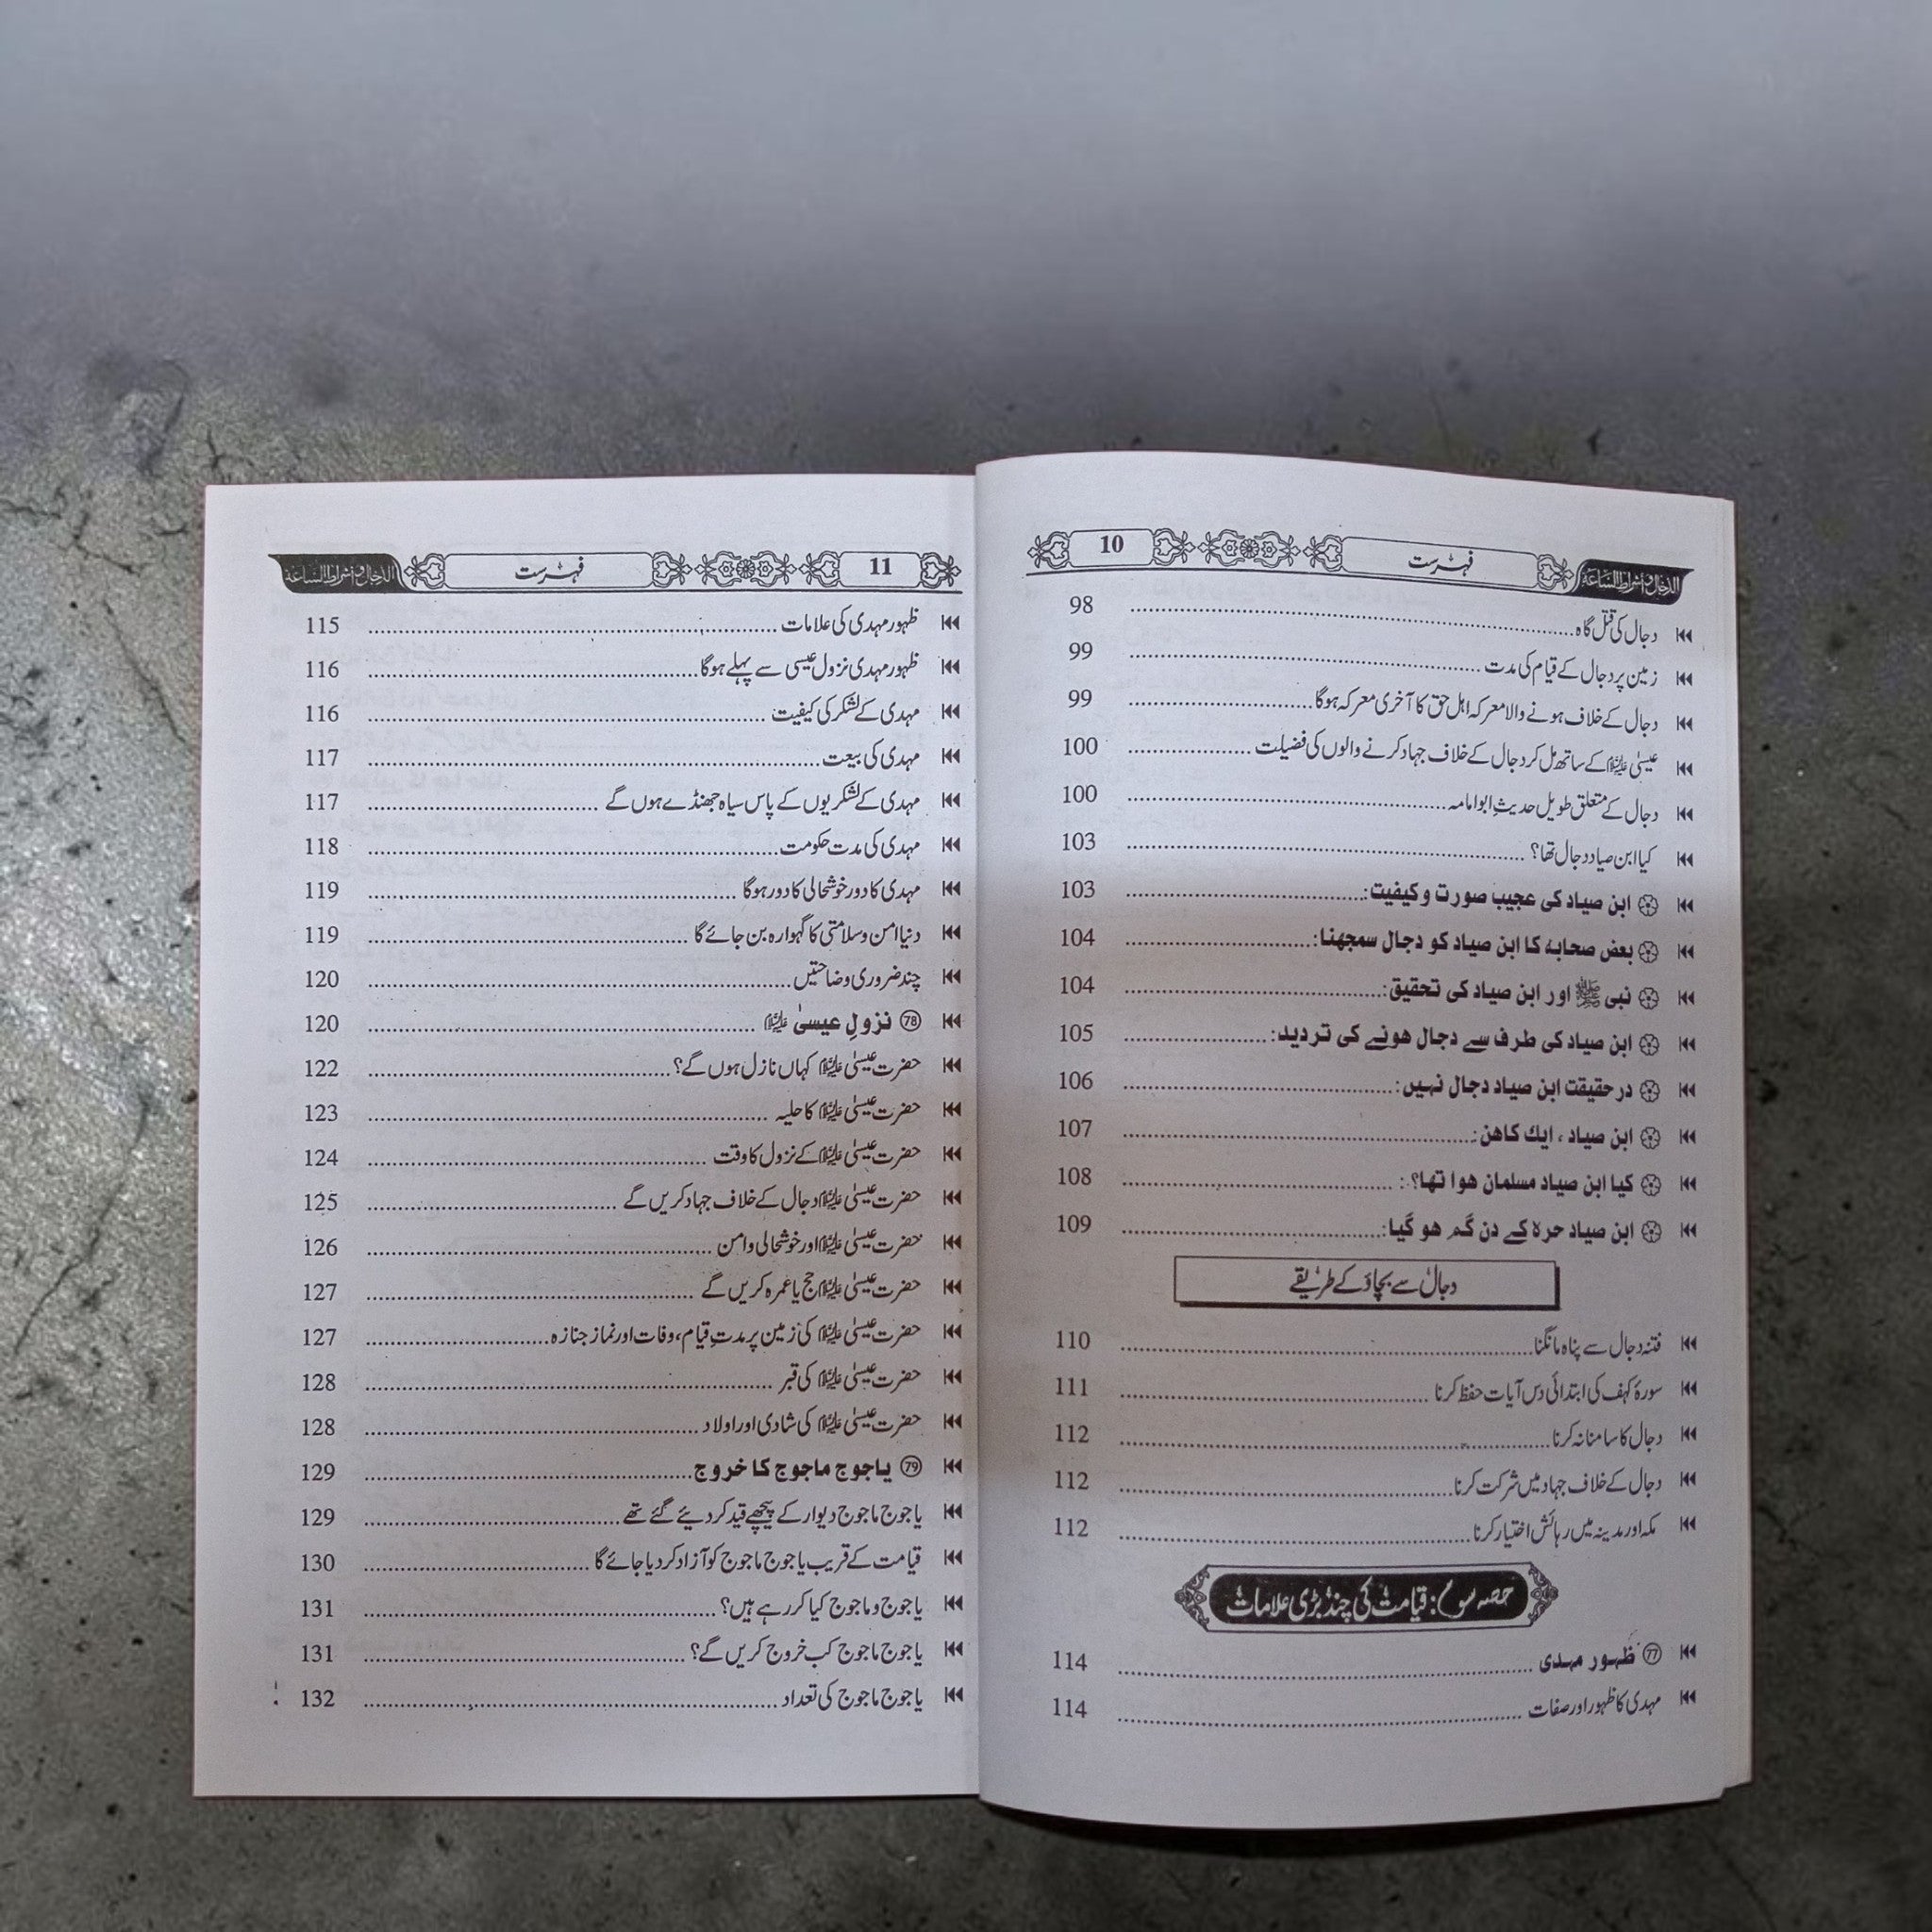 10 فہرست الدجال و اشراط الساعة
دجال کی قتل گاہ 98
زمین پر دجال کے قیام کی مدت 99
دجال کے خلاف ہونے والا معرکہ اہل حق کا آخری معرکہ ہوگا 99
عیسیٰ علیہ السلام کے ساتھ مل کر دجال کے خلاف جہاد کرنے والوں کی فضیلت 100
دجال کے متعلق طویل حدیثِ ابوامامہ 100
کیا ابن صیاد دجال تھا؟ 103
ابن صیاد کی عجیب صورت و کیفیت: 103
بعض صحابہ کا ابن صیاد کو دجال سمجھنا: 104
نبی ﷺ اور ابن صیاد کی تحقیق: 104
ابن صیاد کی طرف سے دجال ہونے کی تردید: 105
درحقیقت ابن صیاد دجال نہیں: 106
ابن صیاد ، ایک کاھن: 107
کیا ابن صیاد مسلمان ہوا تھا؟: 108
ابن صیاد حرہ کے دن گم ہو گیا: 109
دجال سے بچاؤ کے طریقے
فتنہ دجال سے پناہ مانگنا 110
سورۂ کہف کی ابتدائی دس آیات حفظ کرنا 111
دجال کا سامنا نہ کرنا 112
دجال کے خلاف جہاد میں شرکت کرنا 112
مکہ اور مدینہ میں رہائش اختیار کرنا 112
حصہ سوم: قیامت کی چند بڑی علامات
77 ظہور مہدی 114
مہدی کا ظہور اور صفات 114
11 فہرست الدجال و اشراط الساعة
ظہور مہدی کی علامات 115
ظہور مہدی نزول عیسیٰ سے پہلے ہوگا 116
مہدی کے لشکر کی کیفیت 116
مہدی کی بیعت 117
مہدی کے لشکریوں کے پاس سیاہ جھنڈے ہوں گے 117
مہدی کی مدت حکومت 118
مہدی کا دور خوشحالی کا دور ہوگا 119
دنیا امن و سلامتی کا گہوارہ بن جائے گا 119
چند ضروری وضاحتیں 120
78 نزولِ عیسیٰ علیہ السلام 120
حضرت عیسیٰ علیہ السلام کہاں نازل ہوں گے؟ 122
حضرت عیسیٰ علیہ السلام کا حلیہ 123
حضرت عیسیٰ علیہ السلام کے نزول کا وقت 124
حضرت عیسیٰ علیہ السلام دجال کے خلاف جہاد کریں گے 125
حضرت عیسیٰ علیہ السلام اور خوشحالی و امن 126
حضرت عیسیٰ علیہ السلام حج یا عمرہ کریں گے 127
حضرت عیسیٰ علیہ السلام کی زمین پر مدتِ قیام، وفات اور نماز جنازہ 127
حضرت عیسیٰ علیہ السلام کی قبر 128
حضرت عیسیٰ علیہ السلام کی شادی اور اولاد 128
79 یاجوج ماجوج کا خروج 129
یاجوج ماجوج دیوار کے پیچھے قید کر دیئے گئے تھے 129
قیامت کے قریب یاجوج ماجوج کو آزاد کر دیا جائے گا 130
یاجوج و ماجوج کیا کر رہے ہیں؟ 131
یاجوج ماجوج کب خروج کریں گے؟ 131
یاجوج ماجوج کی تعداد 132